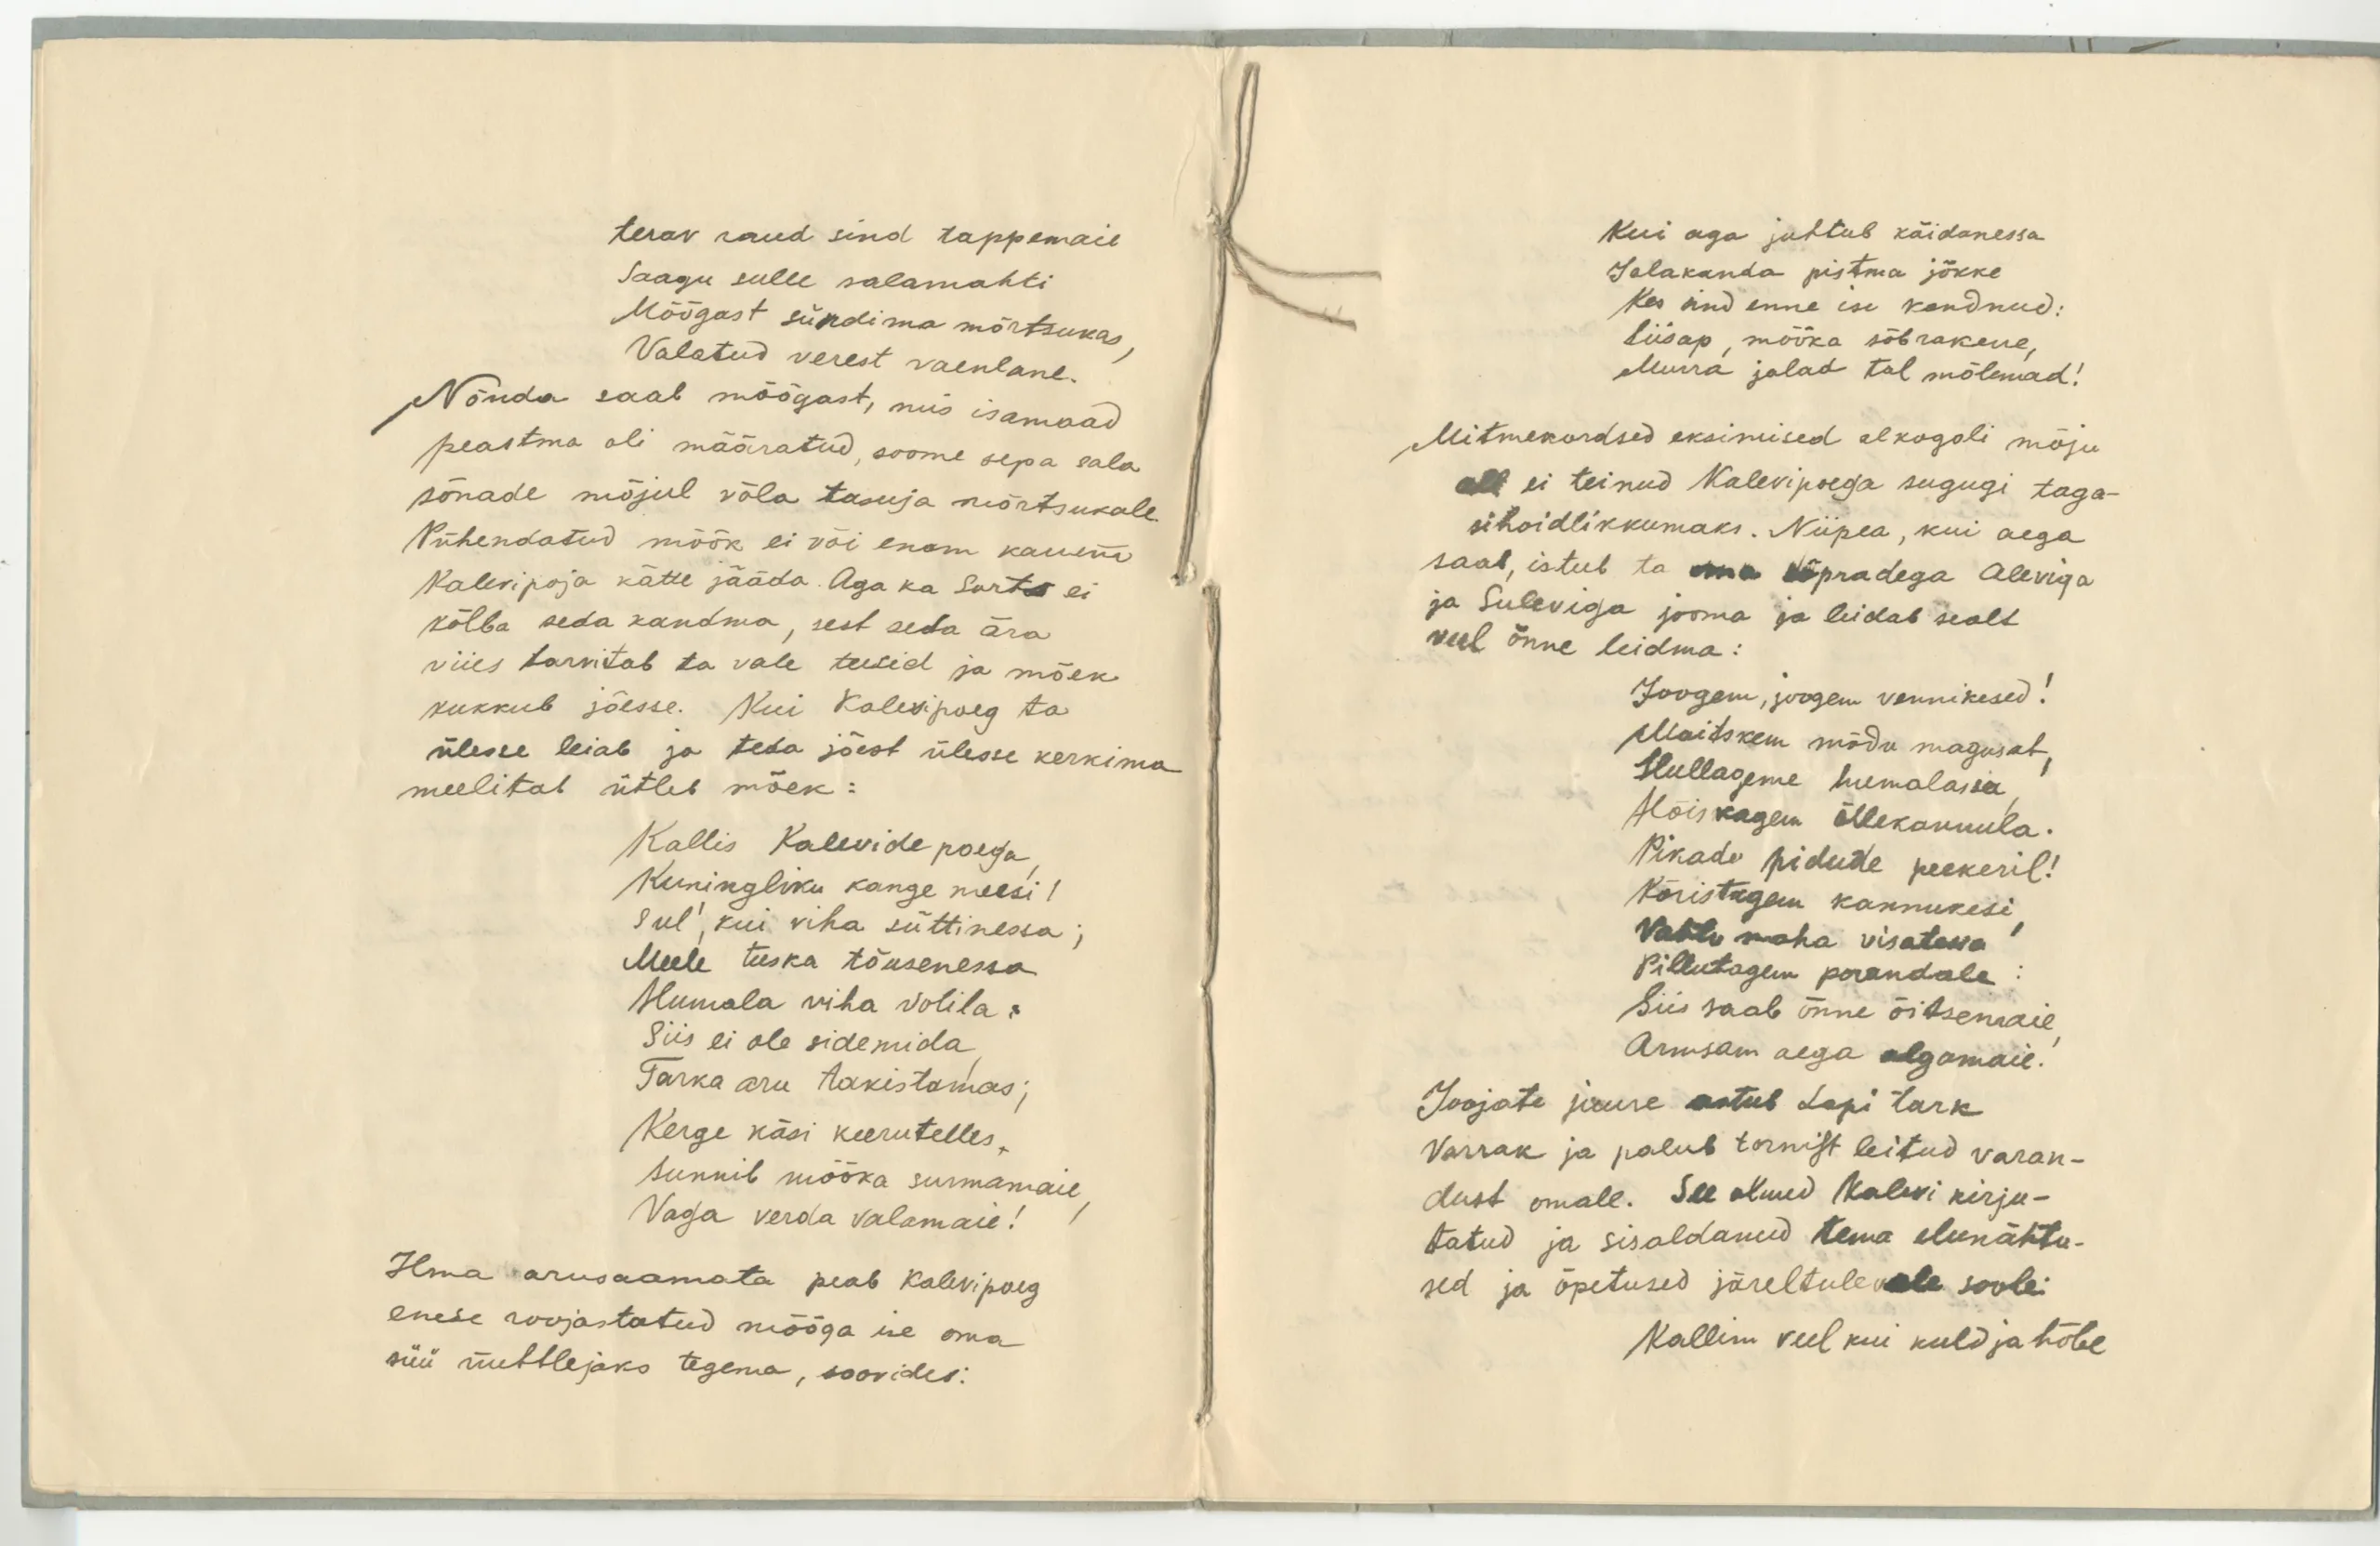 terav raud sind tappemaie
Saagu sulle salamahti
Mõõgast sündima mõrtsukas,
Valatud verest vaenlane.
Nõnda saab mõõgast, mis isamaad
peastma oli määratud, soome sepa sala
sõnade mõjul võla tasuja mõrtsukale.
Pühendatud mõõk ei või enam kauem
Kalevipoja kätte jääda. Aga ka Sorts ei
kõlba seda kandma, sest seda ära
viies tarvitab ta vale teesid ja mõek
kukkub jõesse. Kui Kalevipoeg ta
ülesse leiab ja teda jõest ülesse kerkima
meelitab ütleb mõek:
Kallis Kalevide poega,
Kuningliku kange meesi!
Sul', kui viha süttinessa;
Meele tuska tõusenessa
Humala viha volila:
Siis ei ole sidemida,
Tarka aru takistamas;
Kerge käsi keerutelles,
Sunnib mõõka surmamaie,
Vaga verda valamaie!
Ilma arusaamata peab Kalevipoeg
enese roojastatud mõõga ise oma
süü nuhtlejaks tegema, soovides:
Kui aga juhtub käidanessa
Jalakanda pistma jõkke
Kes sind enne ise kandnud:
Siisap, mõõka sõbrakene,
Murra jalad tal mõlemad!
Mitmekordsed eksimised alkogoli mõju
all ei teinud Kalevipoega sugugi taga-
sihoidlikkumaks. Niipea, kui aega
saab, istub ta oma sõpradega Aleviga
ja Suleviga jooma ja leidab sealt
veel õnne leidma:
Joogem, joogem vennikesed!
Maitskem mõdu magusat,
Hullageme humalassa,
Hõiskagem õllekannula.
Pikade pidude peekeril!
Kõristagem kannukesi,
Vahtu maha visatessa
Pillutagem porandale:
Siis saab õnne õitsemaie,
Armsam aega algamaie!
Joojate juure astub Lapi tark
Varrak ja palub tornist leitud varan-
dust omale. See olnud Kalevi kirju-
tatud ja sisaldanud tema elunähtu-
sed ja õpetused järeltulevale soole:
Kallim veel kui kuld ja hõbe